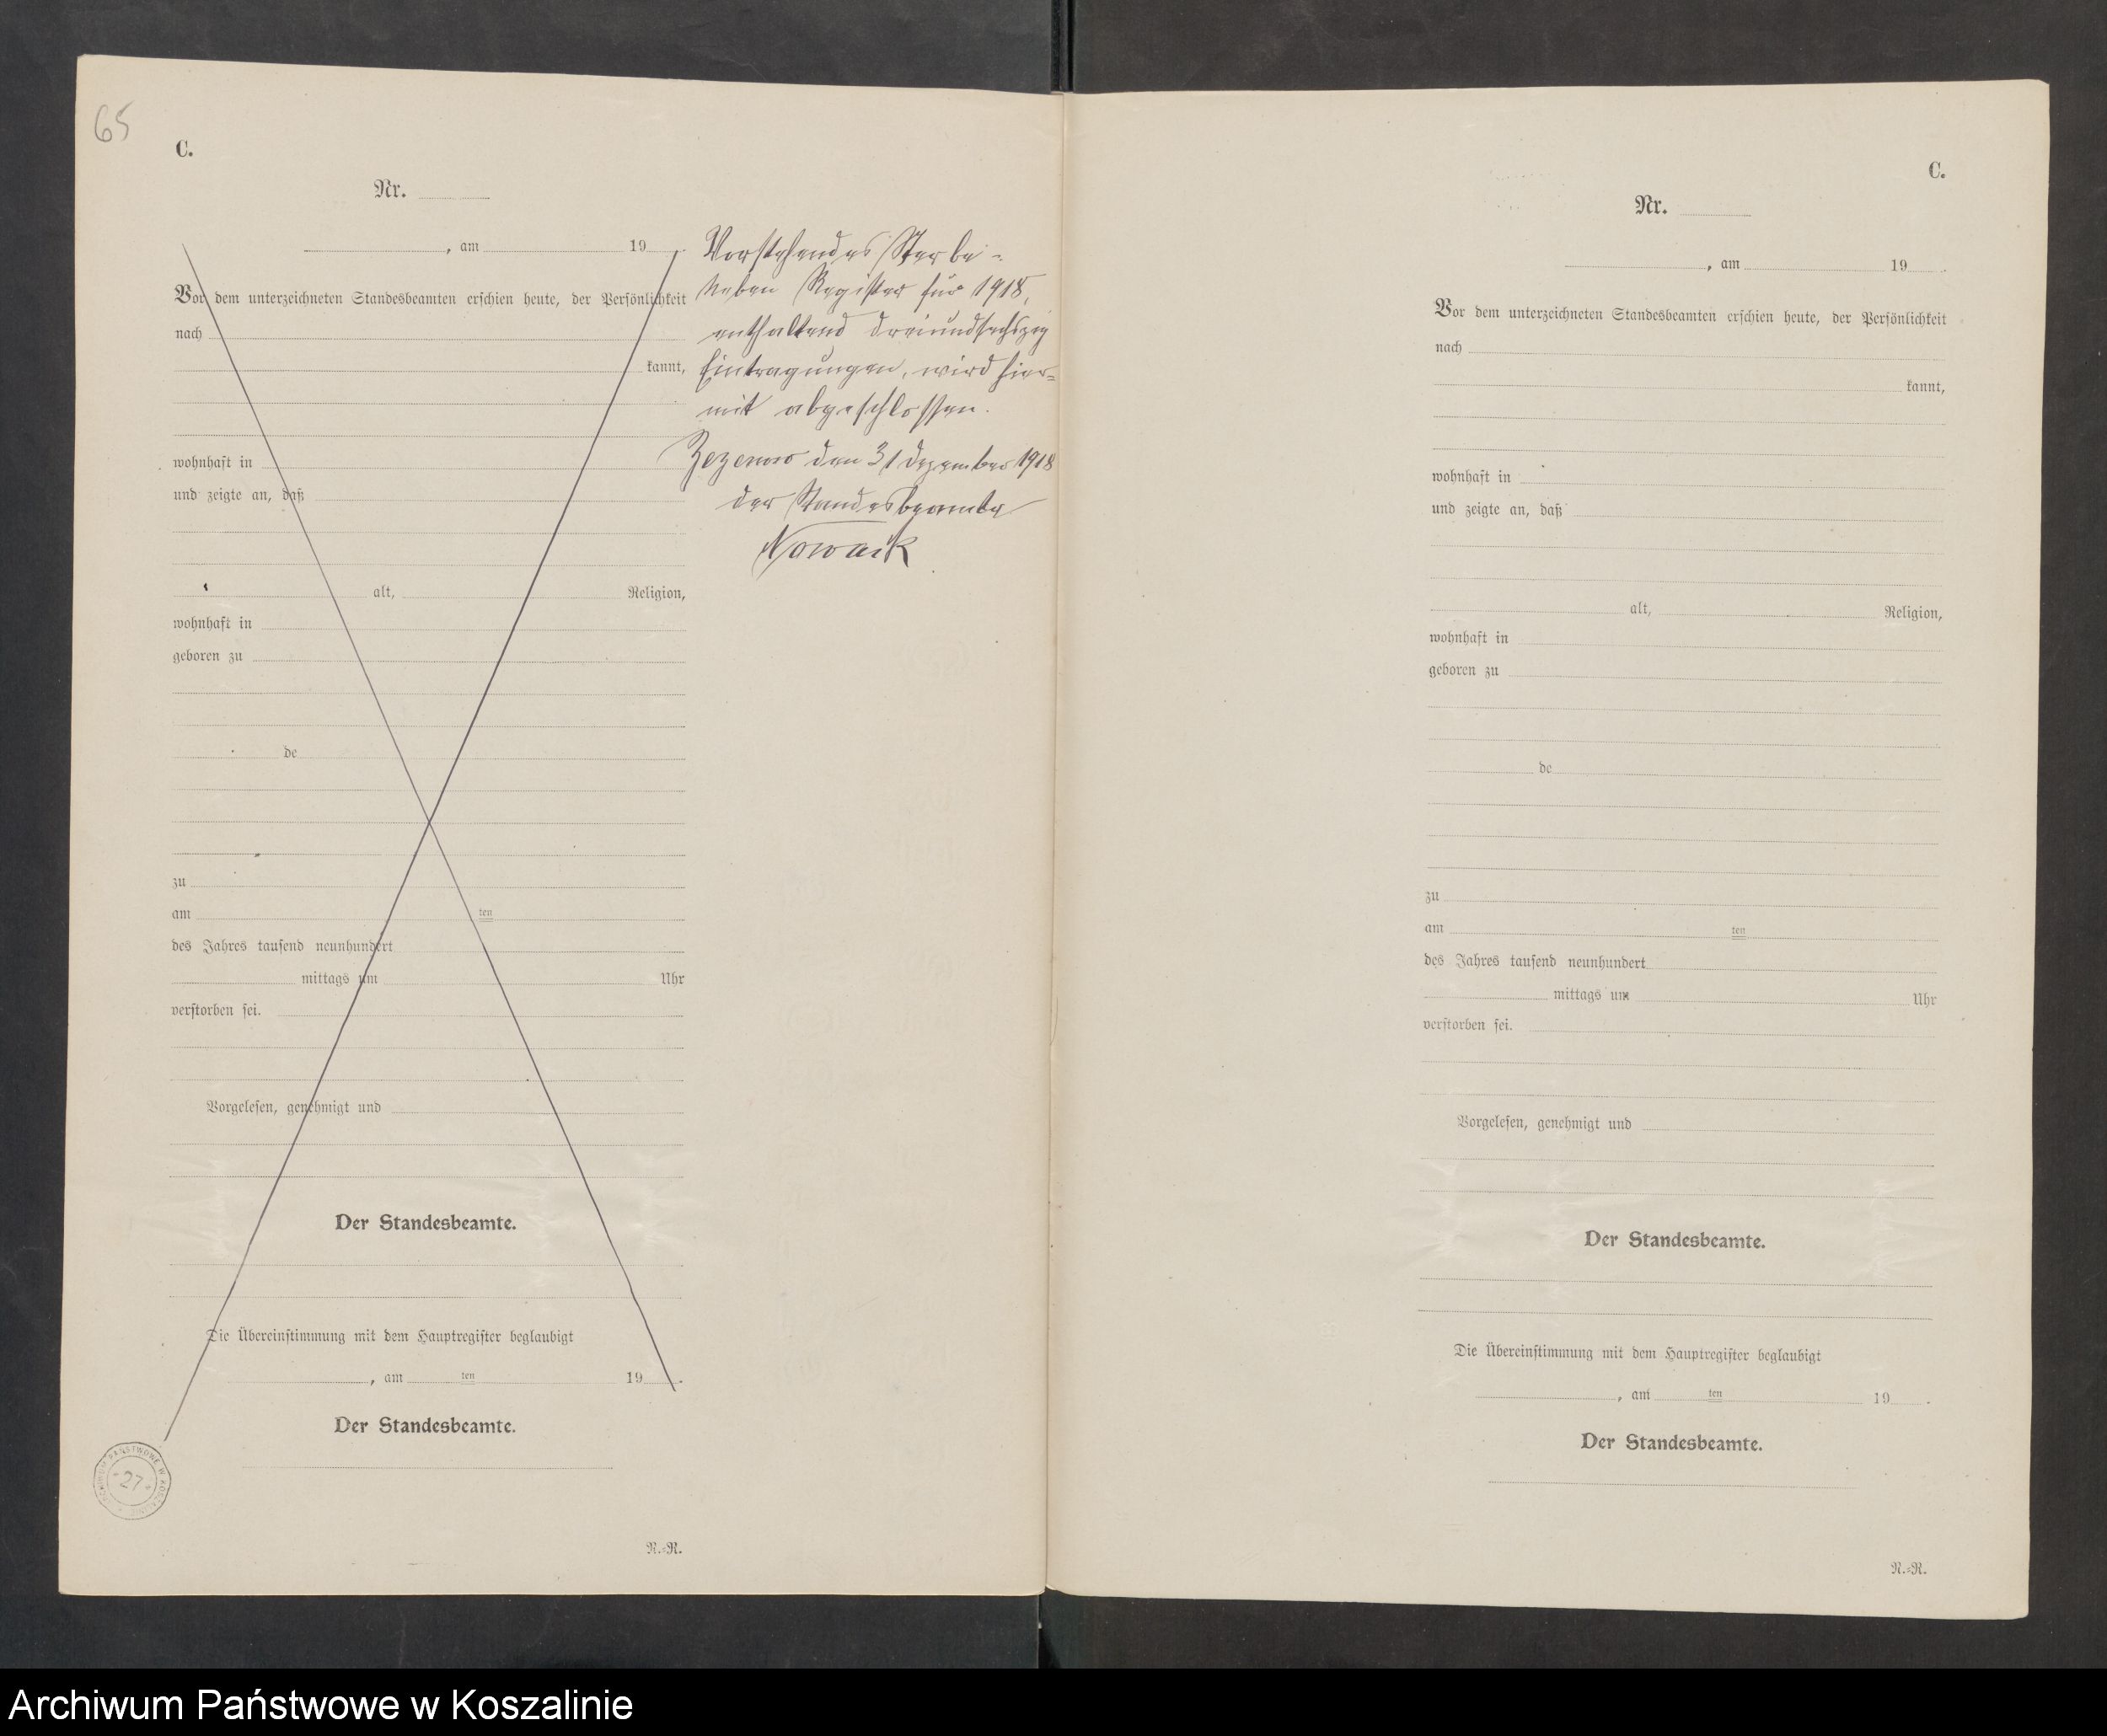 65
C.
Nr.
, am 19 .
Vor dem unterzeichneten Standesbeamten erschien heute, der Persönlichkeit
nach
kannt,
wohnhaft in
und zeigte an, daß
alt, Religion,
wohnhaft in
geboren zu
de
zu
am ten
des Jahres tausend neunhundert
mittags um Uhr
verstorben sei.
Vorgelesen, genehmigt und
Der Standesbeamte.
Die Übereinstimmung mit dem Hauptregister beglaubigt
, am ten 19 .
Der Standesbeamte.
ARCHIWUM PAŃSTWOWE W KOSZALINIE
27
N.-R.
Vorstehendes Sterbe-
Neben Register für 1918,
enthaltend dreiundsechszig
Eintragungen, wird hier-
mit abgeschlossen.
Zezenow den 31 Dezember 1918
der Standesbeamte
Nowack
C.
Nr.
, am 19 .
Vor dem unterzeichneten Standesbeamten erschien heute, der Persönlichkeit
nach
kannt,
wohnhaft in
und zeigte an, daß
alt, Religion,
wohnhaft in
geboren zu
de
zu
am ten
des Jahres tausend neunhundert
mittags um Uhr
verstorben sei.
Vorgelesen, genehmigt und
Der Standesbeamte.
Die Übereinstimmung mit dem Hauptregister beglaubigt
, am ten 19 .
Der Standesbeamte.
N.-R.
Archiwum Państwowe w Koszalinie